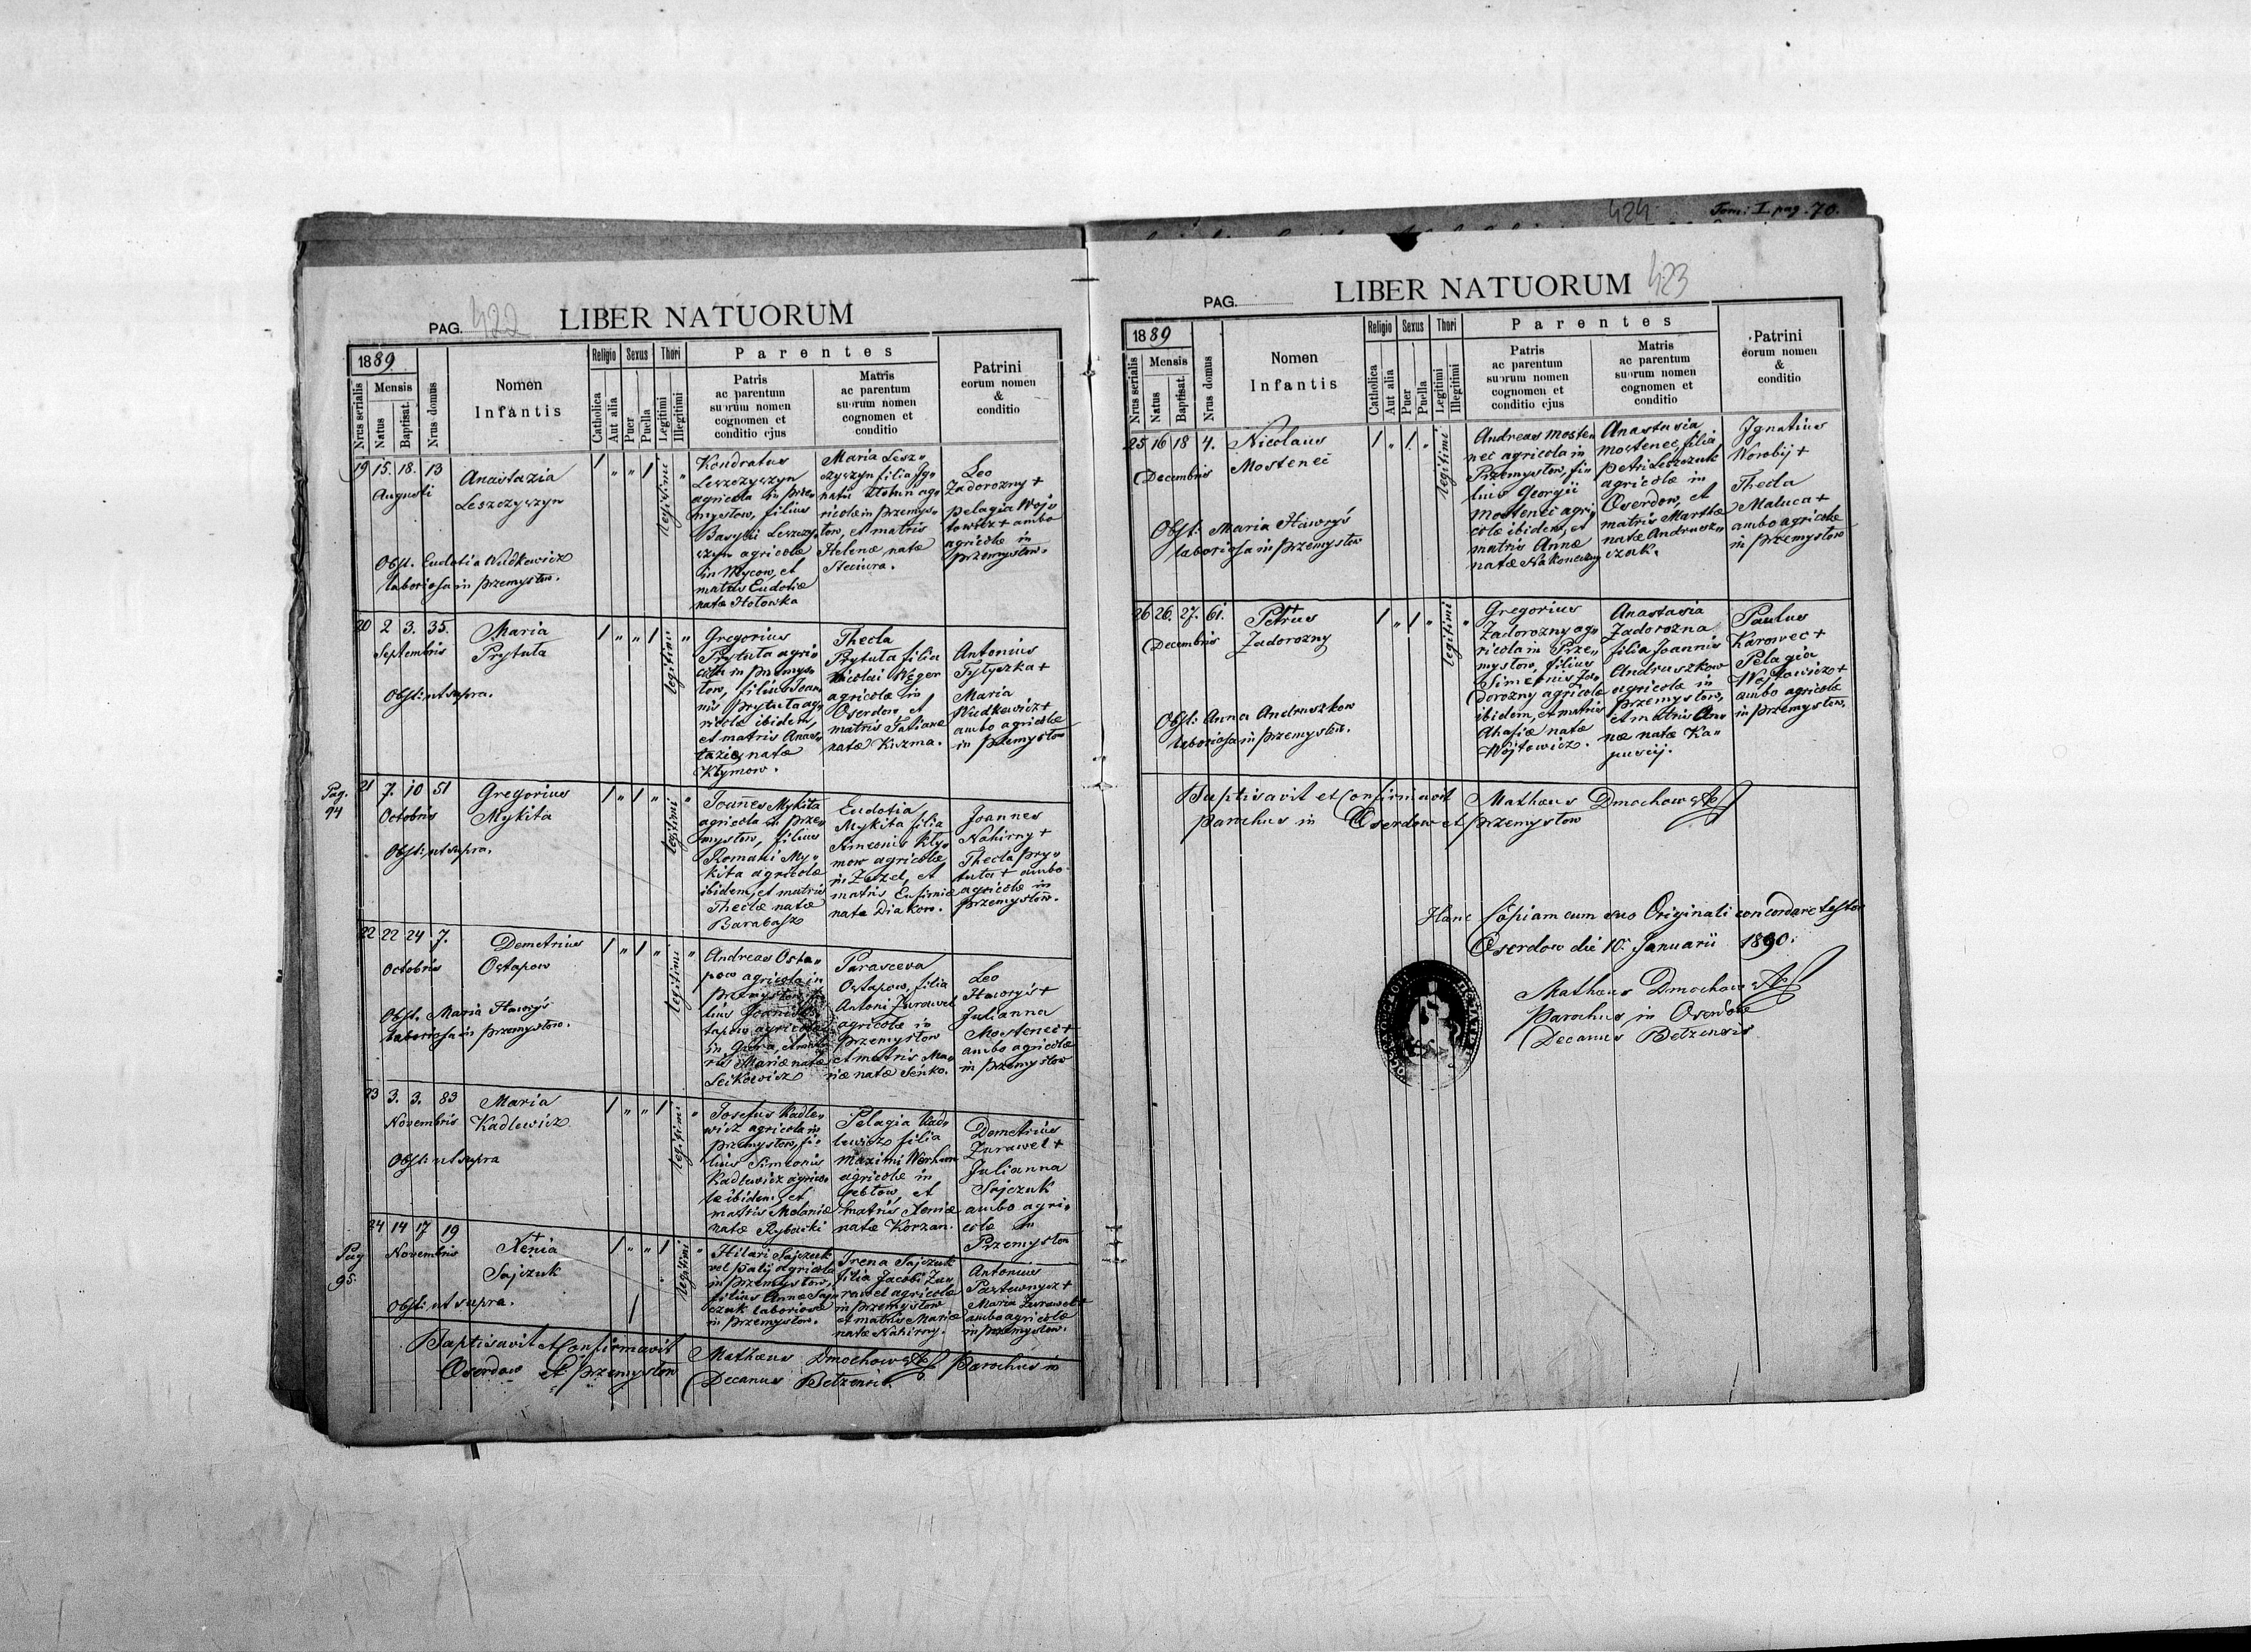 424 Tom: I. pag. 70.
PAG. 422 LIBER NATUORUM
1889
Nrus serialis
Mensis
Natus
Baptisat.
Nrus domus
Nomen
Infantis
Religio
Catholica
Aut alia
Sexus
Puer
Puella
Thori
Legitimi
Illegitimi
Parentes
Patris
ac parentum
suorum nomen
cognomen et
conditio ejus
Matris
ac parentum
suorum nomen
cognomen et
conditio
Patrini
eorum nomen
&
conditio
19 15. 18. 13
Augusti
Anastazia
Leszczyszyn
Obst. Eudotia Wudkewicz
laboriosa in Przemysłow.
1 " " 1 legitimi "
Kondratus
Leszczyszyn
agricola in Prze„
mysłow, filius
Basylii Leszczy„
szyn agricolæ
in Mycow, et
matris Eudotiæ
natæ Hołowka
Maria Lesz„
czyszyn filia Jg„
natii ag„
ricolæ in Przemys„
łow, et matris
Helenæ natæ
Steciura.
Leo
Zadorozny +
Pelagia Wojs
towicz + ambo
agricolæ in
Przemysłow.
20 2 3. 35.
Septembris
Maria
Prytuta
Obst: ut supra.
1 " " 1 legitimi "
Gregorius
Prytuta agri„
cola in Przemys„
łow, filius Joan
nis Prytuta ag„
ricolæ ibidem,
et matris Anas„
taziæ natæ
Kłymow.
Thecla
Prytuta filia
Nicolai Węger
agricolæ in
Oserdow et
matris Tatianæ
natæ Kuzma.
Antonius
Tytyszka +
Maria
Wudkewicz +
ambo agricolæ
in Przemysłow
Pag.
94
21 7. 10 51
Octobris
Gregorius
Mykita
Obst: ut supra.
1 " 1 " legitimi "
Joañes Mykita
agricola in Prze„
mysłow, filius
Romani My„
kita agricolæ
ibidem, et matris
Theclæ natæ
Barabasz
Eudotia
Mykita filia
Simeonis Kły„
mow agricolæ
in Zużel, et
matris Eufimiæ
natæ Diakow.
Joannes
Nahirny +
Thecla Pry„
tuta + ambo
agricolæ in
Przemysłow.
22 22 24 7.
Octobris
Demetrius
Ostapow
Obst. Maria Hawryś
laboriosa in Przemysłow.
1 " 1 " legitimi "
Andreas Osta„
pow agricola in
Przemysłow, fi
lius Joannis Os
tapow agricolæ
in Gora, et mat
ris Mariæ natæ
Seńkowicz
Parasceva
Ostapow, filia
Antoni Zurawel
agricolæ in
Przemysłow
et matris Ma„
riæ natæ Seńko.
Leo
Hawryś +
Julianna
Mostenec +
ambo agricolæ
in Przemysłow
23 3. 3. 83
Novembris
Maria
Kadlewicz
Obst: ut supra
1 " " 1 legitimi "
Josefus Kadle„
wicz agricola in
Przemysłow, fi„
lius Simeonis
Kadlewicz agrico„
læ ibidem, et
matris Melaniæ
natæ Rybacki
Pelagia Kad„
lewicz filia
Maximi Werhun
agricolæ in
Chrebtow, et
matris Xeniæ
natæ Korzan.
Demetrius
Zurawel +
Julianna
Sajczuk
ambo agri„
colæ in
Przemysłow
Pag
95
24 14 17 19
Novembris
+
Xenia
Sajczuk
Obst: ut supra.
1 " " 1 legitimi "
Hilari Sajczuk
vel Palij agricola
in Przemysłow,
filius Annæ Saj„
czuk laboriosæ
in Przemysłow.
Irena Sajczuk
filia Jacobi Zu„
rawel agricolæ
in Przemysłow
et matris Mariæ
natæ Nahirny.
Antonius
Pastewnycz +
Maria Zurawel +
ambo agricolæ
in Przemysłow.
Baptisavit et Confirmavit Mathæus Dmochowski Parochus in
Oserdow et Przemysłow Decanus Bełzensis.
PAG. LIBER NATUORUM 423
1889
Nrus serialis
Mensis
Natus
Baptisat.
Nrus domus
Nomen
Infantis
Religio
Catholica
Aut alia
Sexus
Puer
Puella
Thori
Legitimi
Illegitimi
Parentes
Patris
ac parentum
suorum nomen
cognomen et
conditio ejus
Matris
ac parentum
suorum nomen
cognomen et
conditio
Patrini
eorum nomen
&
conditio
25 16 18 4.
Decembris
Nicolaus
Mostenec
Obst: Maria Hawryś
laboriosa in Przemysłow
1 " 1. " legitimi
Andreas Moste
nec agricola in
Przemysłow, fi„
lius Georgii
Mostenec agri„
colæ ibidem, et
matris Annæ
natæ Nakoneczny
Anastasia
Mostenec filia
Petri Leszczuk
agricolæ in
Oserdow, et
matris Marthæ
natæ Andrusz„
czak.
Jgnatius
Worobij +
Thecla
Maluca +
ambo agricolæ
in Przemysłow
26 26. 27. 61.
Decembris
+
Petrus
Zadorozny
Obst: Anna Andruszkow
laboriosa in Przemysłow.
1 " 1 " legitimi "
Gregorius
Zadorozny ag„
ricola in Prze„
mysłow, filius
Simeonis Za„
dorozny agricolæ
ibidem, et matris
Ahafiæ natæ
Wojtowicz.
Anastasia
Zadorozna
filia Joannis
Andruszkow
agricolæ in
Przemysłow,
et matris An„
næ natæ Ka„
puscij.
Paulus
Karowec +
Pelagia
Wojtowicz +
ambo agricolæ
in Przemysłow.
Baptisavit et Confirmavit Mathæus Dmochowski
Parochus in Oserdow et Przemysłow
Hanc Copiam cum suo Originali concordare testor
Oserdow die 10. Januarii 1890.
Mathæus Dmochowski
Parochus in Oserdow
Decanus Bełzensis